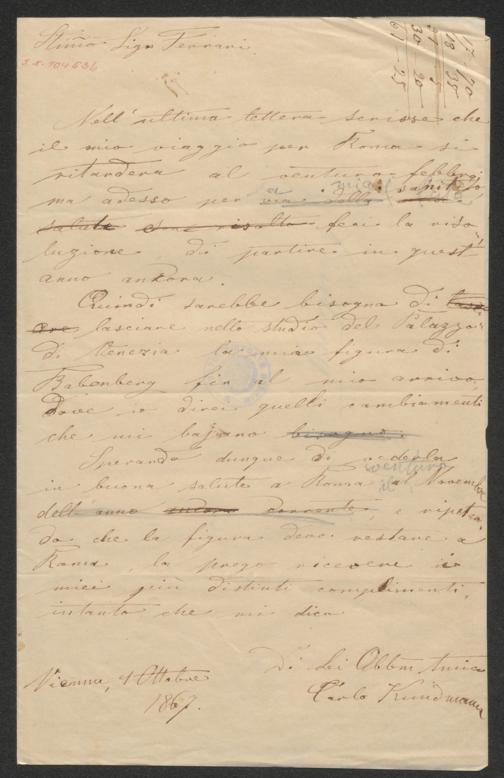 Stimo Sigr Ferrari.
I.N. 104636
17 70
18 35
30 20
67 25
Nell' ultima lettera scrisse che
il mio viaggio per Roma si
ritardera al ventura febbrajo,
ma adesso per mia sanità
salute sono risolto feci la riso
luzione, di partire in quest'
anno ankora.
Quindi sarebbe bisogna di
lasciare nello studio del Palazzo
di Venezia la mia figura di
Babenberg fin al mio arrivo,
dove io direi quelli cambiamenti
che mi bajono bisogno.
Sperando dunque di vederla
in buona salute a Roma al Novembre
venturo
dell'anno ancora corrente, e ripeten
do che la figura deve restare a
Roma, la prego ricevere i
miei più distinti complimenti,
intanto che mi dico
Di Lei Obbmo Amico
Carlo Kundmann
Vienna, 1 Ottobre
1867.